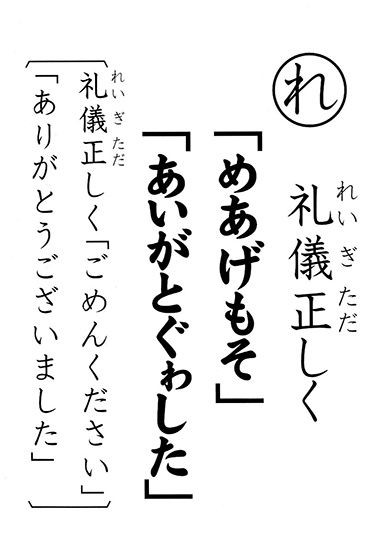 れ
礼儀正しく
「めあげもそ」
「あいがとぐゎした」
礼儀正しく「ごめんください」
「ありがとうございました」